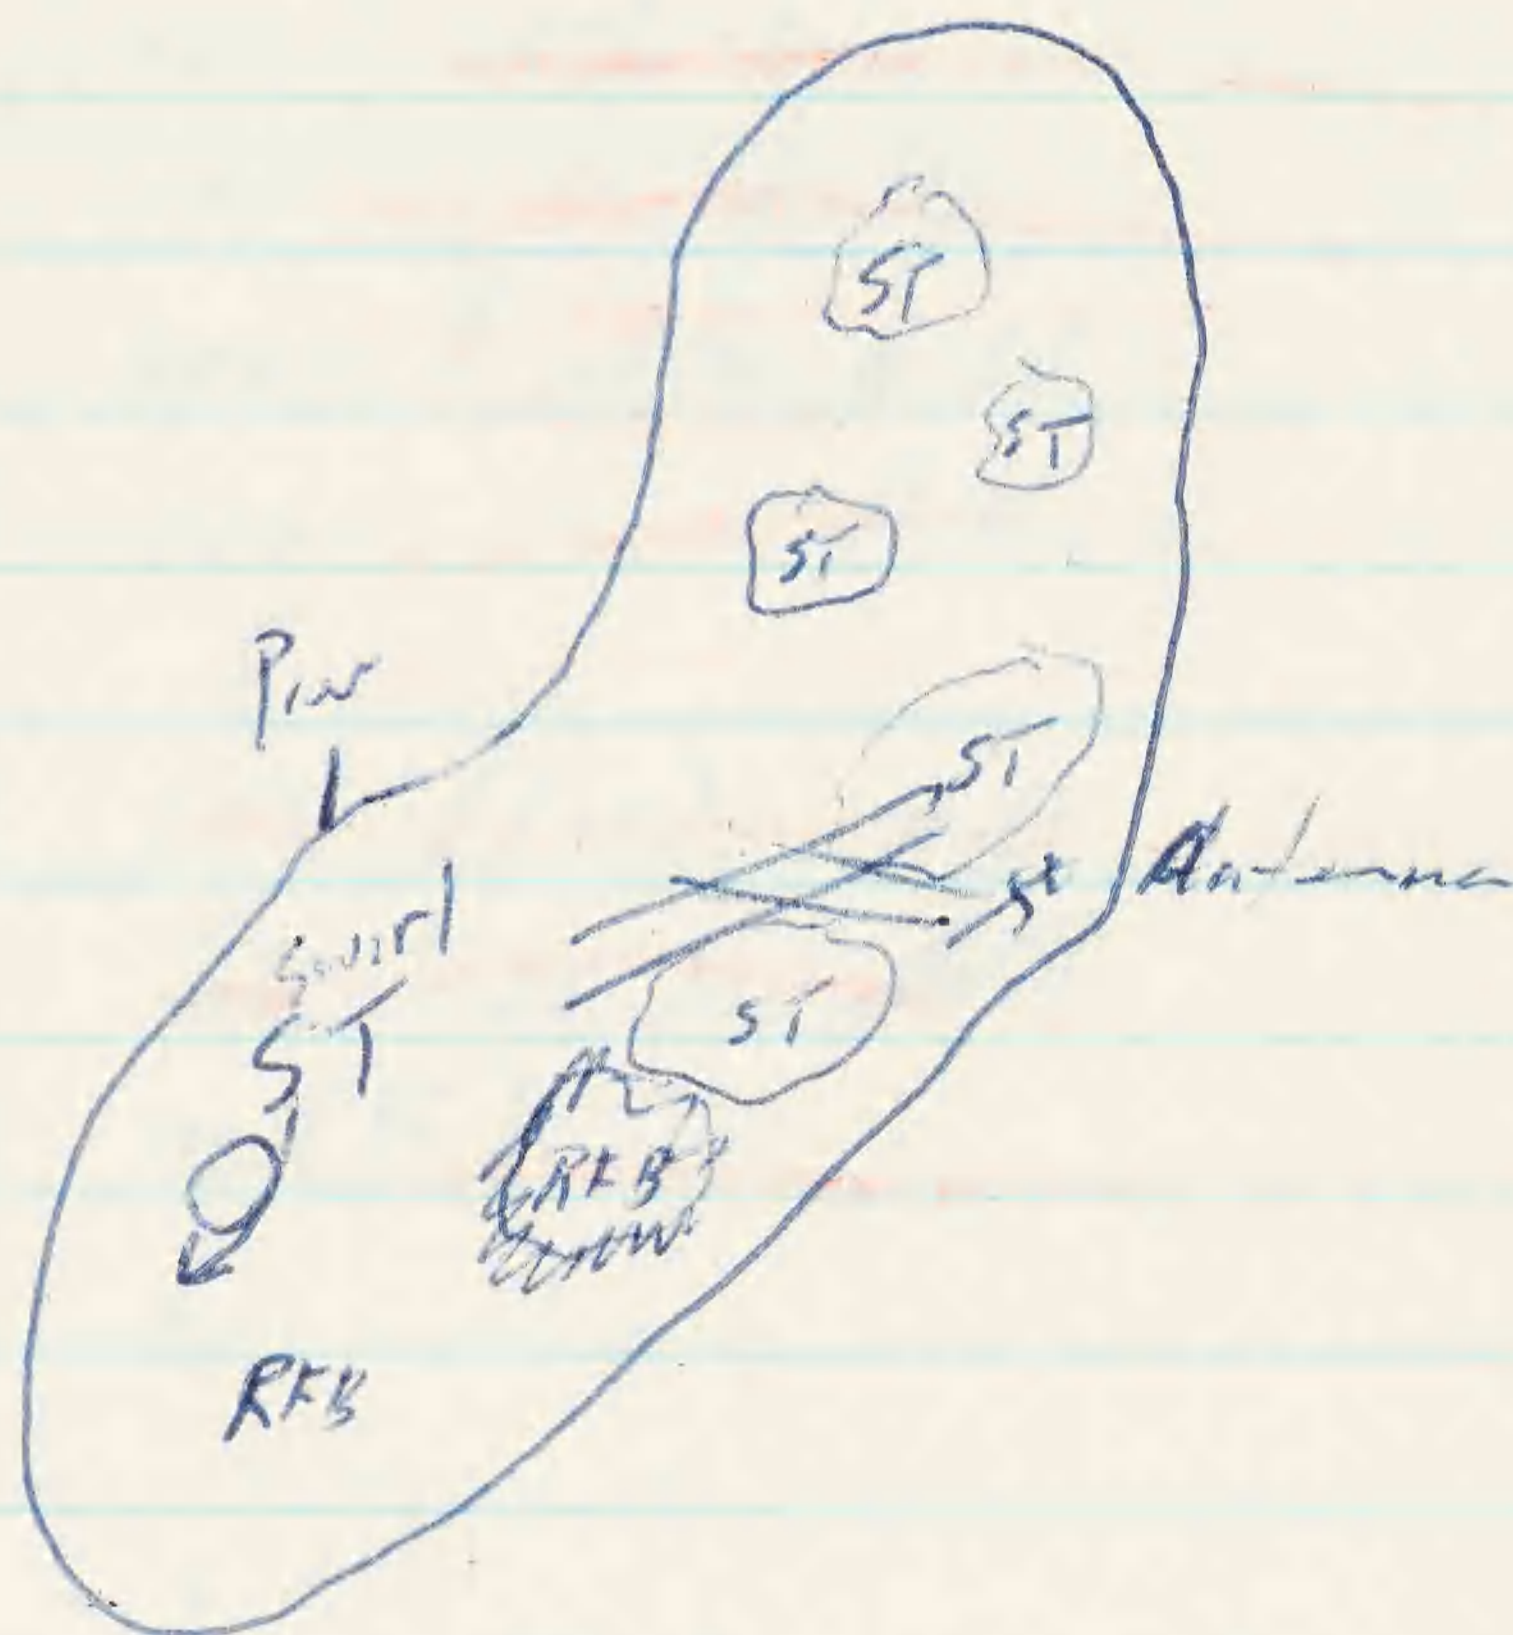 ST
ST
ST
Pier
ST
Antenna
Swirl
ST
ST
RFB
RFB